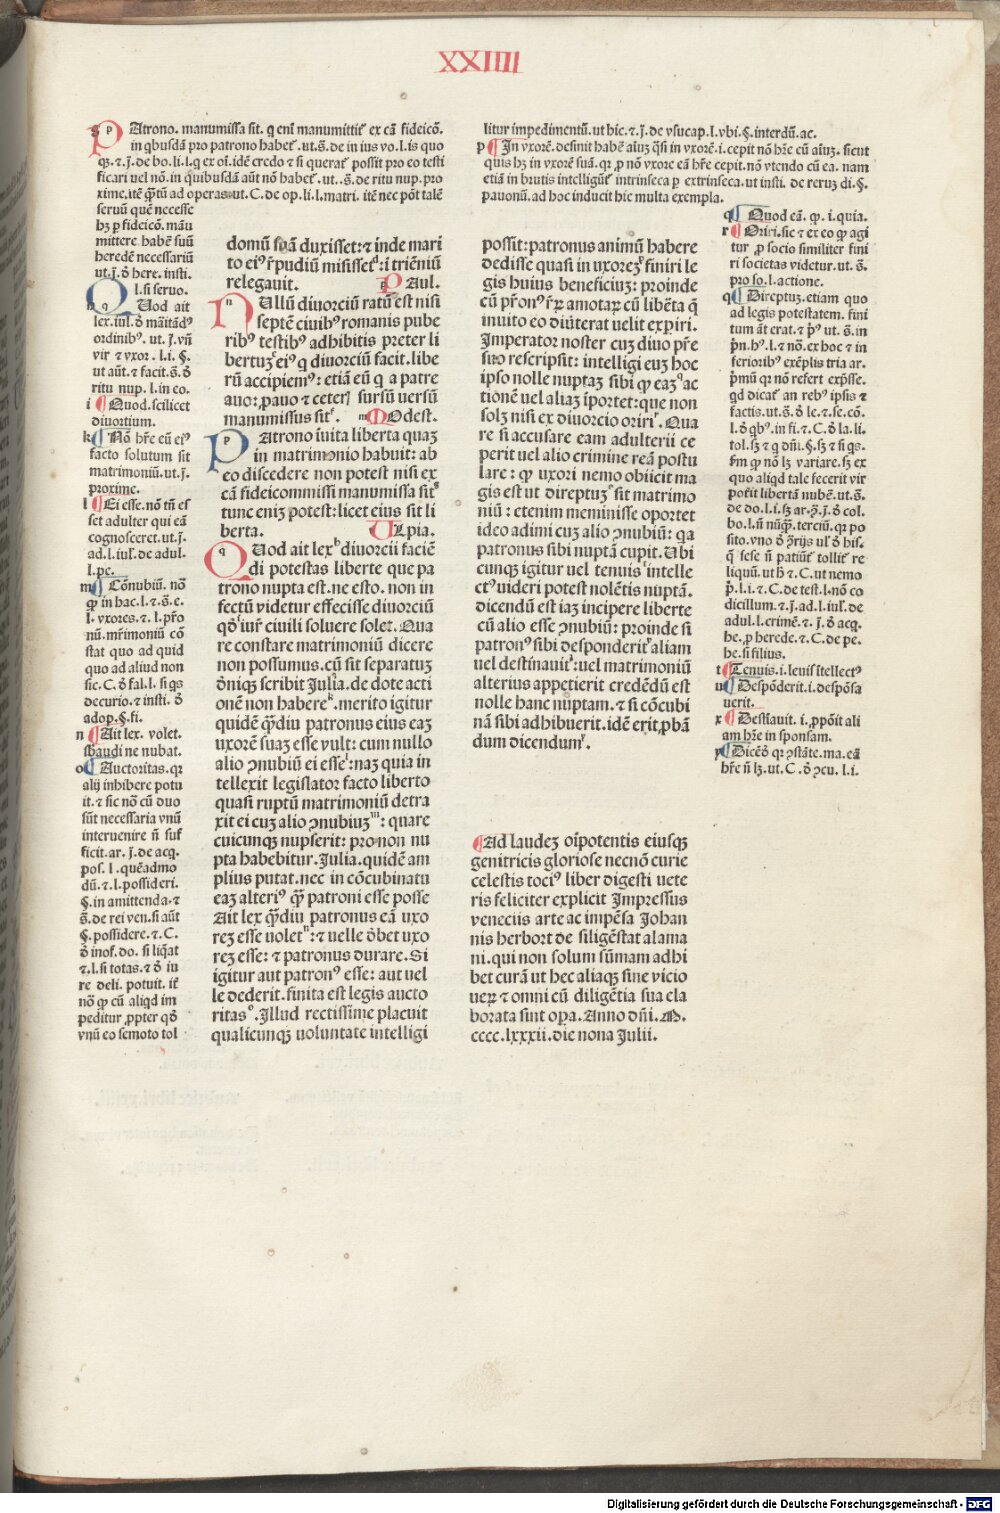 XXIIII
g p Atrono. manumissa sit. q eni manumittit ex cã fideicõ.
in qbusdã pro patrono habet. ut.s. de in ius vo. l. is quo
qꝫ. ⁊.j. de bo. li. l. q ex oi. idẽ credo ⁊ si querat possit pro eo testi
ficari vel nõ. in quibusdã aũt nõ habet. ut. s. de ritu nup. pro
xime. itẽ qtũ ad operas. ut. C. de op. li. l. matri. itẽ nec põt talẽ
seruũ quẽ necesse
hꝫ p fideicõ. mãu
mittere habẽ suũ
heredẽ necessariũ
ut.j. õ here. insti.
l. si seruo.
n q Uod ait
lex. iul. õ mãitãdꝰ
ordinibꝰ. ut.j. vñ
vir ⁊ vxor. l. i. §.
ut aũt. ⁊ facit. s. õ
ritu nup. l. in eo.
i Quod. scilicet
diuortium.
k Nõ hr̃e eũ eiꝰ
facto solutum sit
matrimoniũ. ut.j.
proxime.
l Ei esse. nõ tñ es
set adulter qui eã
cognosceret. ut.j.
ad. l. iul. de adul.
l. pe.
m Cõnubiũ. nõ
qꝫ in hac. l. ⁊. s. e.
l. vxores. ⁊. l. pr̃o
nũ. mr̃imoniũ cõ
stat quo ad quid
quo ad aliud non
sic. C. õ fal. l. si qs
decurio. ⁊ insti. õ
adop. §. fi.
n Ait lex. volet.
s̃baudi ne nubat.
o Auctoritas. qr
alij inhibere potu
it. ⁊ sic nõ cũ duo
sũt necessaria vnũ
interuenire ñ suf
ficit. ar.j. de acq.
pos. l. quẽadmo
dũ. ⁊. l. possideri.
§. in amittenda. ⁊
s. de rei ven. si aũt
§. possidere. ⁊. C.
õ inof. do. si liqat
⁊. l. si totas. ⁊ õ iu
re deli. potuit. it
nõ qꝫ cũ aliqd im
peditur ꝓpter qõ
vnũ eo semoto tol
domũ suã duxisset: ⁊ inde mari
to eiꝰ r̃pudiũ misisset: i triẽniũ
relegauit. P Aul.
N Ullũ diuorciũ ratũ est nisi
septẽ ciuibꝰ romanis pube
ribꝰ testibꝰ adhibitis preter li
bertuꝫ eiꝰ q diuorciũ facit. libe
rũ accipiemꝰ: etiã eũ q a patre
auo: ꝓauo ⁊ ceteris sursũ uersũ
manumissus sit. M Odest.
P Atrono iuita liberta quaꝫ
in matrimonio habuit: ab
eo discedere non potest nisi ex
cã fideicommissi manumissa sit
tunc eniꝫ potest: licet eius sit li
berta. U Lpia.
Q Uod ait lex diuorcii faciẽ
di potestas liberte que pa
trono nupta est. ne esto. non in
fectũ videtur effecisse diuorciũ
qõ iur̃ ciuili soluere solet. Qua
re constare matrimoniũ dicere
non possumus. cũ sit separatuꝫ
õniqꝫ scribit Julia. de dote acti
onẽ non habere. merito igitur
quidẽ qdiu patronus eius eaꝫ
uxorẽ suaꝫ esse vult: cum nullo
alio ꝯnubiũ ei esse: naꝫ quia in
tellexit legislator facto liberto
quasi ruptũ matrimoniũ detra
xit ei cuꝫ alio ꝯnubiuꝫ: quare
cuicunqꝫ nupserit: pro non nu
pta habebitur. Julia. quidẽ am
plius putat. nec in cõcubinatu
eaꝫ alteriꝰ qꝫ patroni esse posse
Ait lex qdiu patronus eã uxo
reꝫ esse uolet: ⁊ uelle õbet uxo
reꝫ esse: ⁊ patronus durare. Si
igitur aut patronꝰ esse: aut uel
le dederit. finita est legis aucto
ritas. Illud rectissime placuit
qualicunqꝫ uoluntate intelligi
litur impedimentũ. ut hic. ⁊.j. de vsucap. l. vbi. §. interdũ. ac.
p In vxorẽ. desinit habẽ aiuꝫ qsi in vxorẽ. i. cepit nõ hr̃e cũ aiuꝫ. sicut
quis hꝫ in vxorẽ suã. qꝛ ꝓ nõ vxore eã hr̃e cepit. nõ vtendo cũ ea. nam
etiã in brutis intelligũt intrinseca p extrinseca. ut insti. de reruꝫ di. §.
pauonũ. ad hoc inducit hic multa exempla.
possit: patronus animũ habere
dedisse quasi in uxoreꝫ finiri le
gis huius beneficiuꝫ: proinde
cũ pr̃onꝰ rꝝ amotaꝝ cũ libẽta q
inuito eo diuterat uelit exꝑiri.
Imperator noster cuꝫ diuo pr̃e
suo rescripsit: intelligi euꝫ hoc
ipso nolle nuptaꝫ sibi qꝫ eaꝫ ac
tionẽ uel aliaꝫ iportet: que non
solꝫ nisi ex diuorcio oriri. Qua
re si accusare eam adulterii ce
perit uel alio crimine reã postu
lare: qꝫ uxori nemo obiicit ma
gis est ut direptuꝫ sit matrimo
niũ: etenim meminisse oportet
ideo adimi cuꝫ alio ꝯnubiũ: qa
patronus sibi nuptã cupit. Ubi
cunqꝫ igitur uel tenuis intelle
ctꝰ uideri potest nolẽtis nuptã.
dicendũ est iaꝫ incipere liberte
cũ alio esse ꝯnubiũ: proinde si
patronꝰ sibi desponderit aliam
uel destinauit: uel matrimoniũ
alterius appetierit credẽdũ est
nolle hanc nuptam. ⁊ si cõcubi
nã sibi adhibuerit. idẽ erit ꝓbã
dum dicendum.
Ad laudeꝫ oĩpotentis eiusqꝫ
genitricis gloriose necnõ curie
celestis tociꝰ liber digesti uete
ris feliciter explicit Impressus
veneciis arte ac impẽsa Johan
nis herbort de siligẽstat alama
ni. qui non solum sũmam adhi
bet curã ut hec aliaqꝫ sine vicio
ueꝝ ⁊ omni cũ diligẽtia sua ela
borata sint oꝑa. Anno dñi. M.
cccc. lxxxii. die nona Julii.
q Quod eã. qꝫ. i. quia.
r Oriri. sic ⁊ ex eo qꝫ agi
tur ꝓ socio similiter fini
ri societas videtur. ut. s.
pro so. l. actione.
q Direptuꝫ. etiam quo
ad legis potestatem. fini
tum ãt erat. ⁊ p̃ꝰ ut. s. in
p̃n. hꝰ. l. ⁊ nõ. ex hoc ⁊ in
ferioribꝰ exẽplis tria ar.
p̃mũ qꝛ nõ refert exp̃sse.
qd dicat an rebꝰ ipsis ⁊
factis. ut. s. õ le. ⁊ se. cõ.
l. õ qbꝰ. in fi. ⁊. C. õ la. li.
tol. sꝫ ⁊ q dñi. §. sꝫ ⁊ si qs.
s̃m qꝫ nõ lꝫ variare. sꝫ ex
quo aliqd tale fecerit vir
poẽit libertã nubẽ. ut. s.
de do. l. i. sꝫ ar. ꝯ. j. õ col.
bo. l. ñ nũqꝫ. terciũ. qꝛ po
sito. vno õ ꝯrijs ul õ his.
q sese ñ patiũt tollit re
liquũ. ut h̃ ⁊. C. ut nemo
p̃. l. i. ⁊. C. de test. l. nõ co
dicillum. ⁊.j. ad. l. iul. de
adul. l. crimẽ. ⁊. j. õ acq.
he. ꝓ herede. ⁊. C. de pe.
he. si filius.
t Tenuis. i. leuis ĩtellectꝰ
u Despõderit. i. despõsa
uerit.
x Destĩauit. i. ꝓpõit ali
am hr̃e in sponsam.
y Dicẽõ qꝛ ꝯstãte. ma. eã
hr̃e ñ lꝫ. ut. C. õ ꝯcu. l. i.
Digitalisierung gefördert durch die Deutsche Forschungsgemeinschaft - DFG